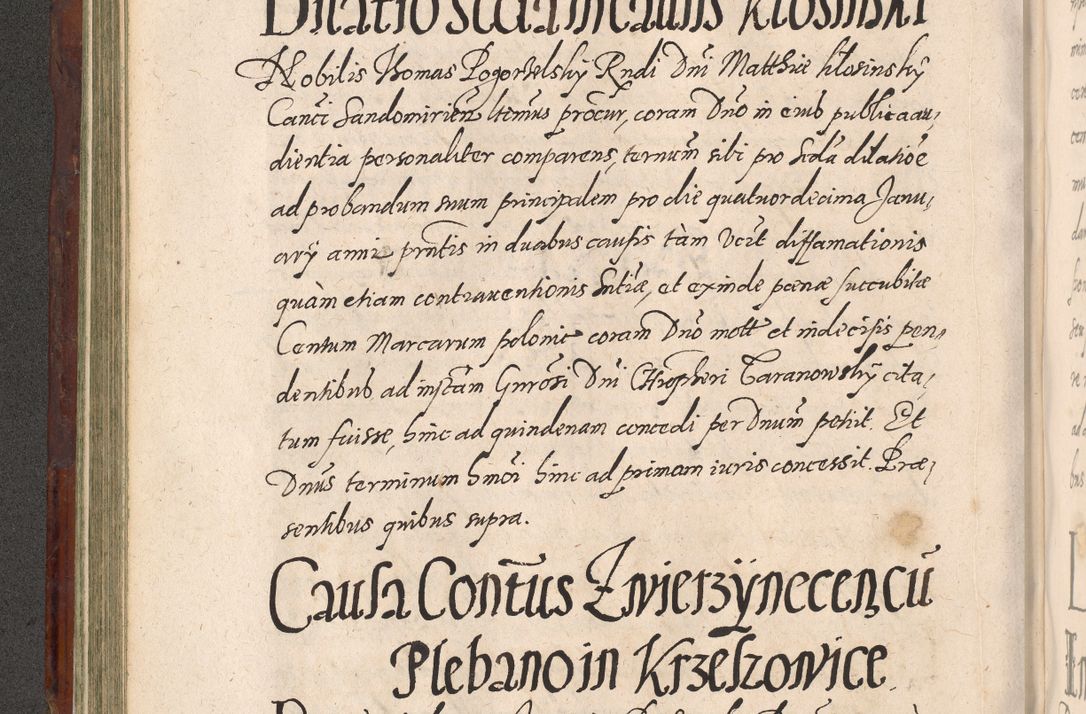 Dilatio scda in causis Klosinski
Nobilis Thomas Pogorzelskÿ Rndi Dni Matthiæ Klosinskÿ
Canci Sandomirien ltimus procur, coram Dno in eius publica au,
dientia personaliter comparens, ternum sibi pro scda dilatioe
ad probandum suum principalem pro die quatuordecima Janu,
arÿ anni prntis in duabus causis tàm vcit diffamationis
quàm etiam contraventionis sntiæ, et exinde poenæ succubitæ
Centum Marcarum polonic coram Dno mott et indecisis pen,
dentibus ad instam Gnrosi Dni Chrõpheri Taranowskÿ cita,
tum fuisse, hinc ad quindenam concedi per Dnum petiit. Et
Dnus terminum hmoi hinc ad primam iuris concessit. Præ,
sentibus quibus supra.
Causa Contus Zwierzÿnecen, cu
Plebano in Krzeszowice